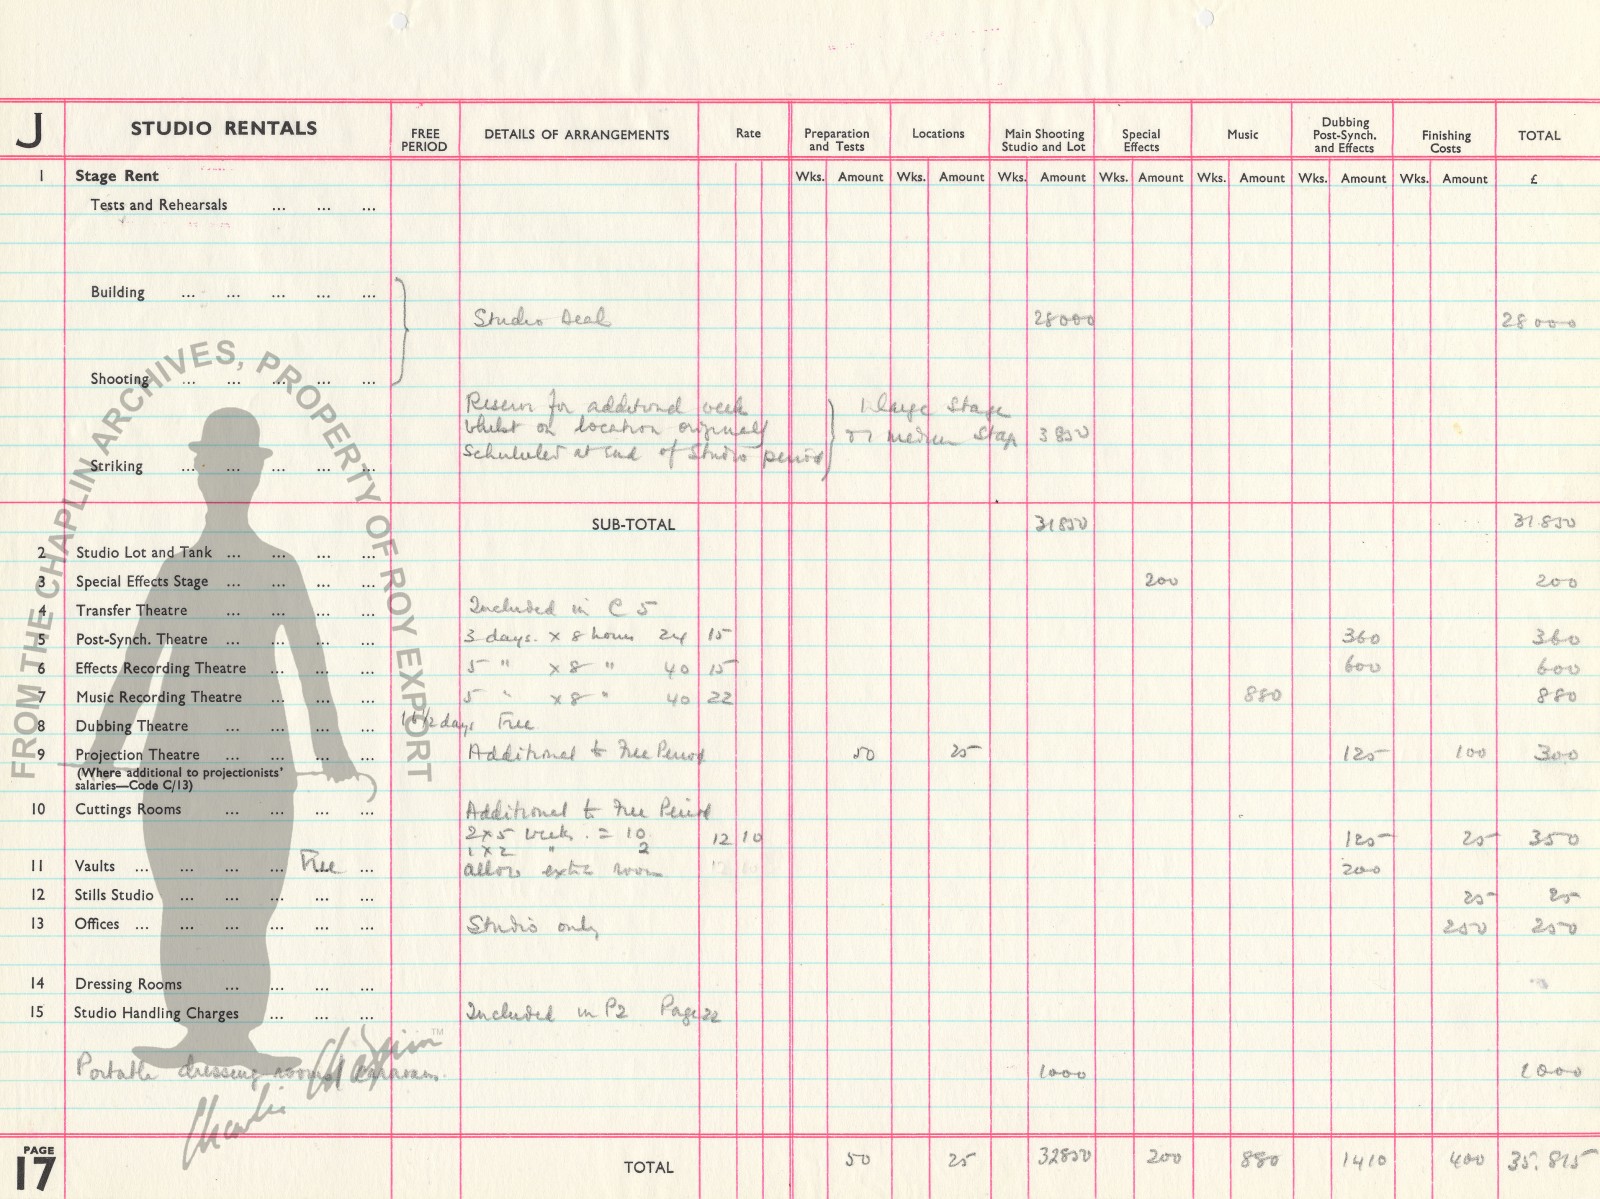 J STUDIO RENTALS FREE PERIOD DETAILS OF ARRANGEMENTS Rate Preparation and Tests Locations Main Shooting Studio and Lot Special Effects Music Dubbing Post-Synch. and Effects Finishing Costs TOTAL
1 Stage Rent Wks. Amount Wks. Amount Wks. Amount Wks. Amount Wks. Amount Wks. Amount Wks. Amount £
Tests and Rehearsals ... ... ...
Building ... ... ... ... ...
Studio Deal 28000 28000
Shooting ... ... ... ... ...
Reserve for additional week 1 large Stage
whilst on location originally or medium Stage 3850
scheduled at end of Studio period
Striking ... ... ... ... ...
SUB-TOTAL 31850 31850
2 Studio Lot and Tank ... ... ... ...
3 Special Effects Stage ... ... ... ... 200 200
4 Transfer Theatre ... ... ... ... Included in C 5
5 Post-Synch. Theatre ... ... ... ... 3 days. x 8 hours 24 15 360 360
6 Effects Recording Theatre ... ... ... 5 " x 8 " 40 15 600 600
7 Music Recording Theatre ... ... ... 5 " x 8 " 40 22 880 880
8 Dubbing Theatre ... ... ... ... days Free
9 Projection Theatre ... ... ... ... Additional to Free Period 50 25 125 100 300
(Where additional to projectionists'
salaries—Code C/13)
10 Cuttings Rooms ... ... ... ... Additional to Free Period
2x5 weeks. = 10 12 10 125 25 350
1x2 " 2
11 Vaults ... ... ... ... Free ... allow extra room 200
12 Stills Studio ... ... ... ... ... 25 25
13 Offices ... ... ... ... ... ... Studio only 250 250
14 Dressing Rooms ... ... ... ...
15 Studio Handling Charges ... ... ... Included in P2 Page 22
Portable dressing rooms/caravans. 1000 1000
PAGE 17 TOTAL 50 25 32850 200 880 1410 400 35,815
FROM THE CHAPLIN ARCHIVES, PROPERTY OF ROY EXPORT
Charlie Chaplin™